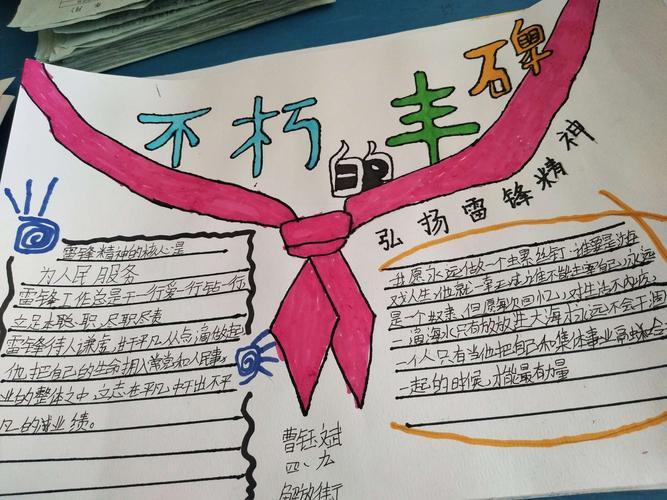 不朽的丰碑
弘扬雷锋精神
雷锋精神的核心是
为人民服务
雷锋工作总是干一行爱一行钻一行
立足本职、职、尽职尽责
雷锋待人谦虚,出于平凡从点滴做起
他把自己的生命拥入常党和人民事
业的整体之中,立志在平凡中干出不平
凡的业绩。
我愿永远做一个螺丝钉,谁要是游
戏人生,他就一事无成,谁不能主宰自己,永远
是一个奴隶,但愿每次回忆,对生活不内疚,
一滴海水只有放进大海才永远不会干涸
一个人只有当他把自己和集体事业融合
一起的时候,才能最有力量
曹钰斌
四、九
解放街